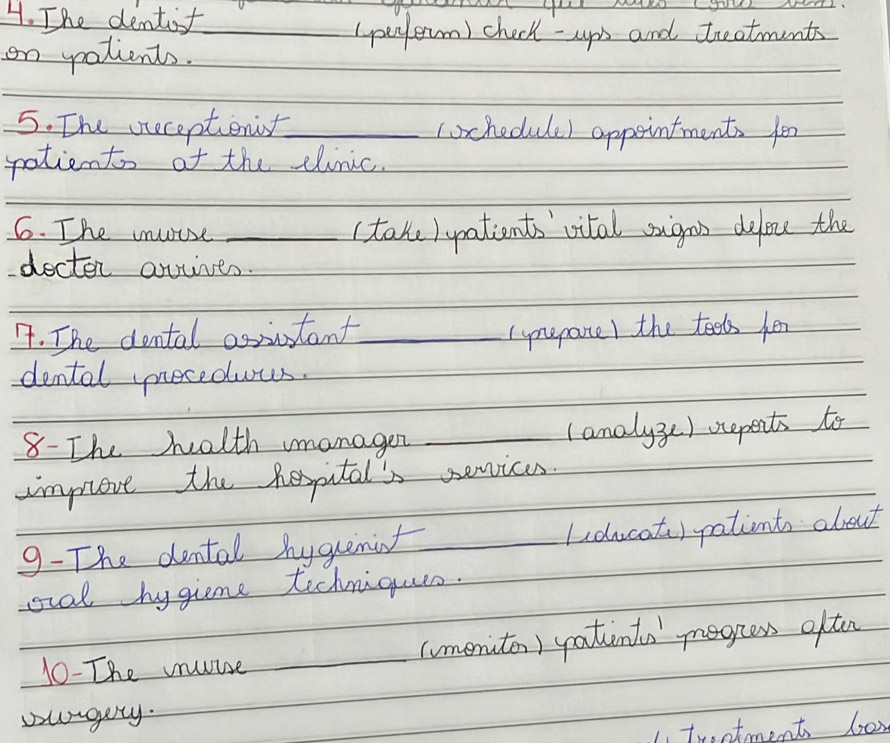 4. The dentist ________ (perform) check-ups and treatments
on patients.
5. The receptionist ________ (schedule) appointments for
patients at the clinic.
6. The nurse ________ (take) patients' vital signs before the
doctor arrives.
7. The dental assistant ________ (prepare) the tools for
dental procedures.
8- The health manager ________ (analyze) reports to
improve the hospital's services.
9- The dental hygienist ________ (educate) patients about
oral hygiene techniques.
10- The nurse ________ (monitor) patients' progress after
surgery.
treatments